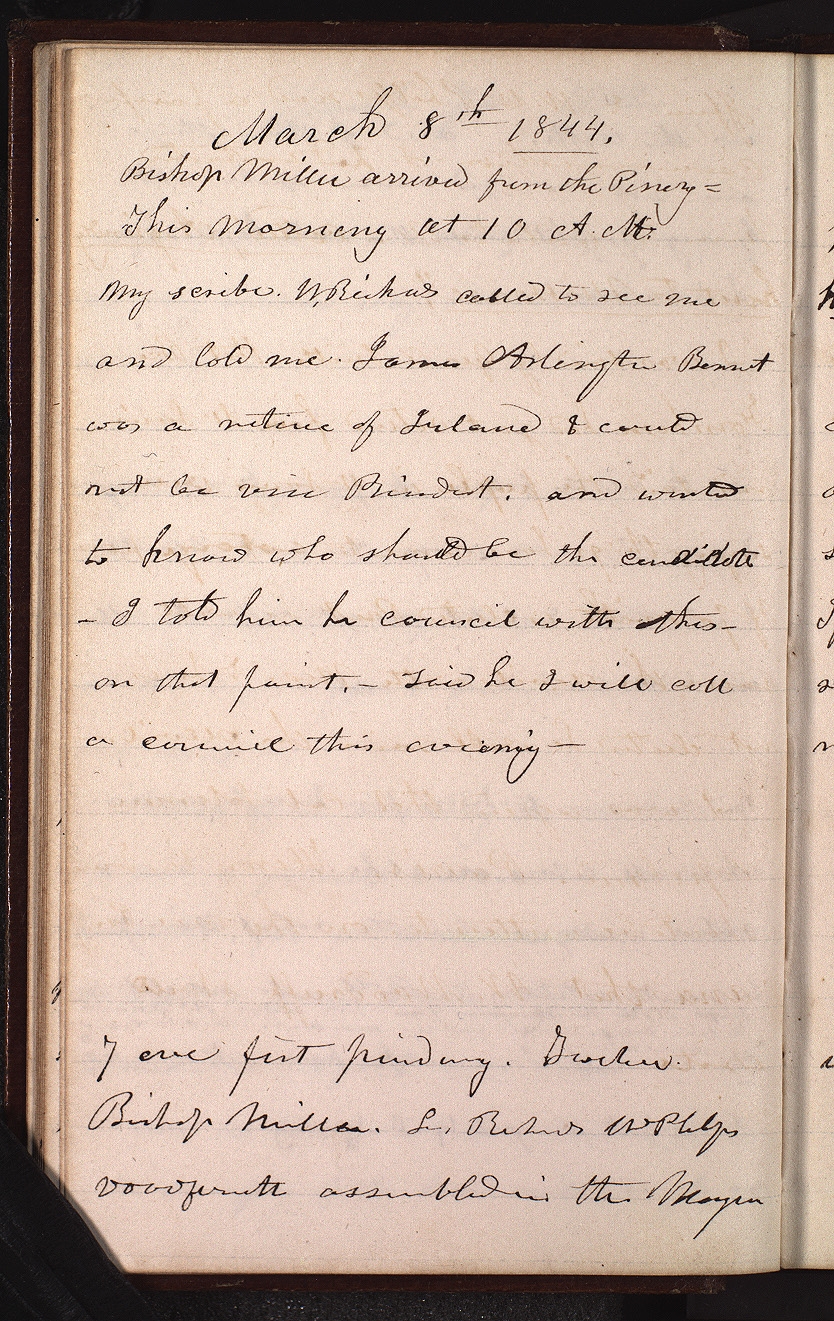 March 8th 1844.
Bishop Miller arrived from the Pinery =
This morning at 10 A.M.
My scribe. W. Richards called to see me
and told me. James Arlington Bennet
was a native of Ireland & could
not be vice President. and wanted
to know who should be the candidate
- I told him he council with this -
on that point. - said he I will call
a council this evening -
7 eve first presidency. Twelve.
Bishop Miller. L. Richards W Phelps
woodworth assembled in the Mayor